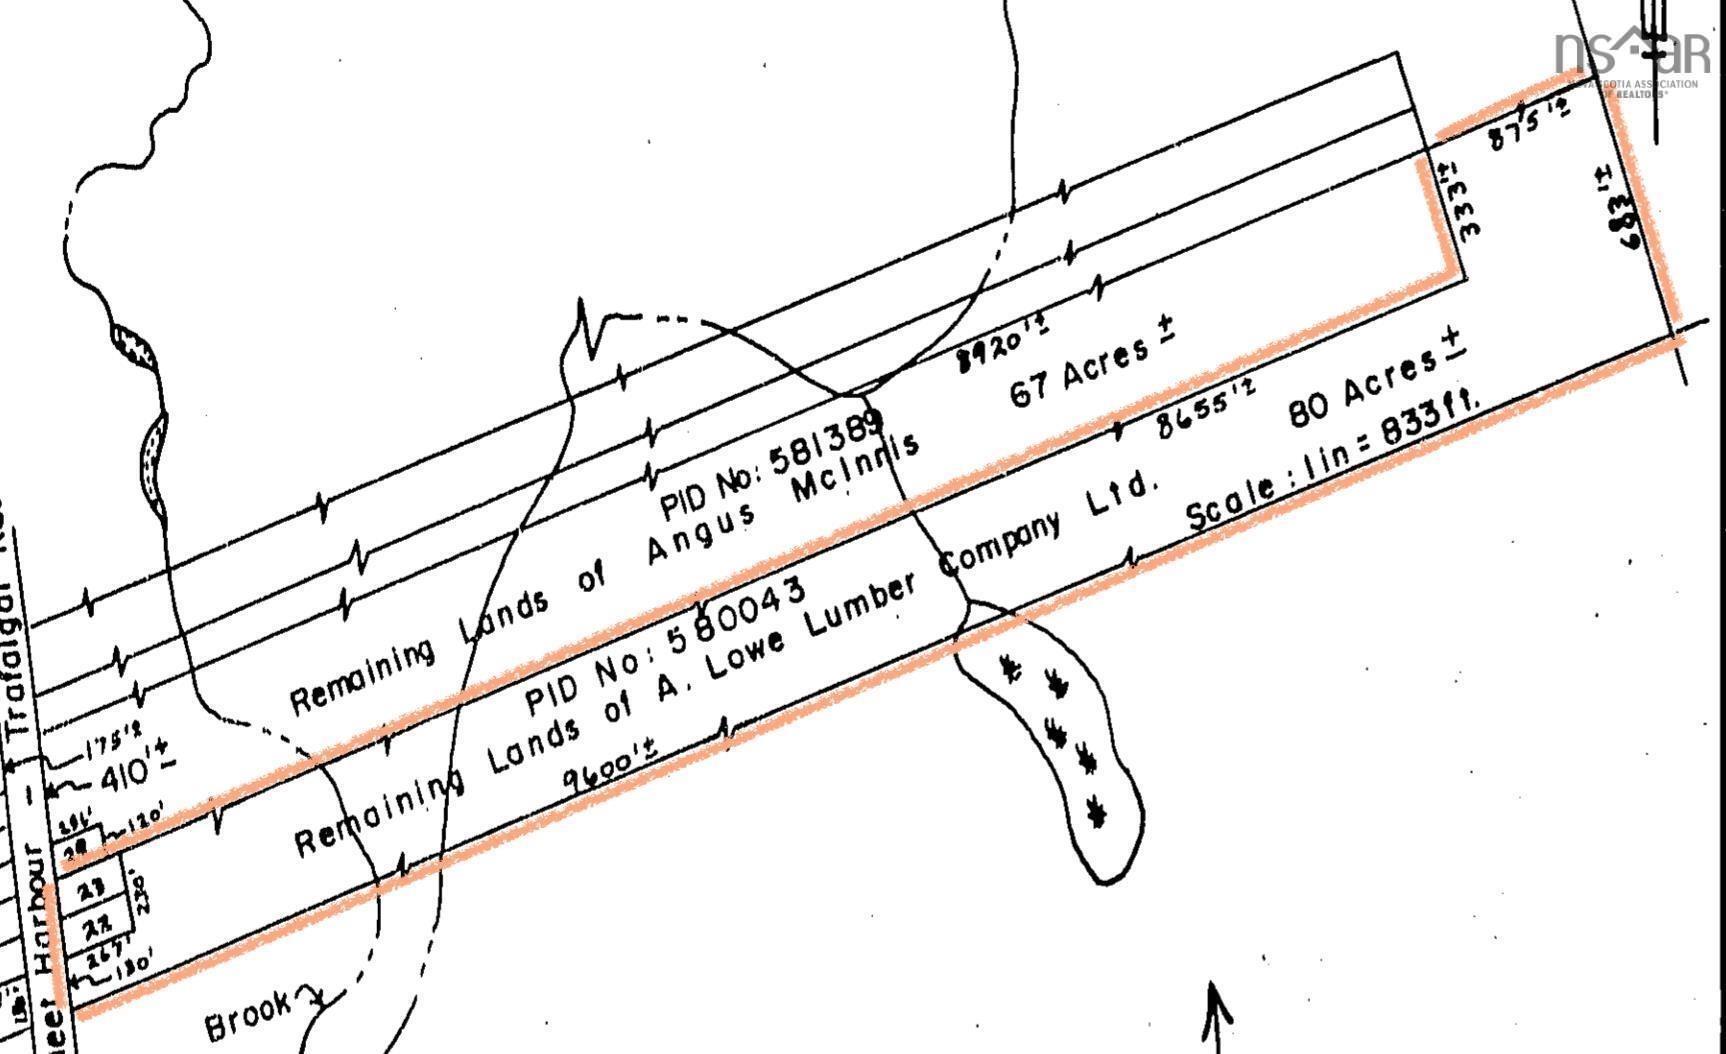 nsar
NOVA SCOTIA ASSOCIATION
OF REALTORS®
875'±
333'±
683'±
8920'±
67 Acres ±
PID No: 581389
Remaining Lands of Angus McInnis
8655'±
80 Acres ±
Scale : 1 in = 833 ft.
PID No: 580043
Remaining Lands of A. Lowe Lumber Company Ltd.
9600'±
Trafalgar
175'±
410'±
120'
23
230'
22
267'
130'
Harbour -
Brook